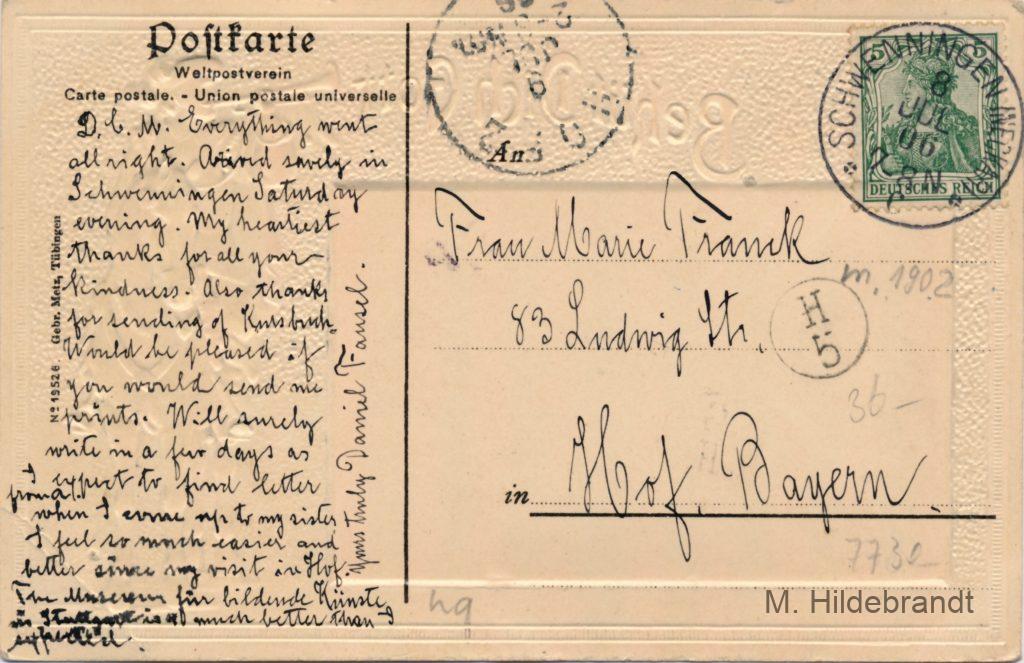 Postkarte
Weltpostverein
Carte postale. - Union postale universelle
D. C. M. Everything went
all right. Arrived savely in
Schwenningen Saturday
evening. My heartiest
thanks for all your
kindness. Also thanks
for sending of Kursbuch.
Would be pleased if
you would send me
prints. Will surely
write in a few days as
I expect to find letter
from
when I come up to my sister
I feel so much easier and
better since my visit in Hof.
The Museum für bildende Künste
in Stuttgart is much better than I
expected.
Yours truly Daniel Fausel.
No 19526 Gebr. Metz, Tübingen
An
Frau Marie Franck
83 Ludwig Str.
in Hof, Bayern
SCHWENNINGEN
8
JUL
06
8N
5
DEUTSCHES REICH
H.
5
m. 1902
36-
7730-
hg
M. Hildebrandt